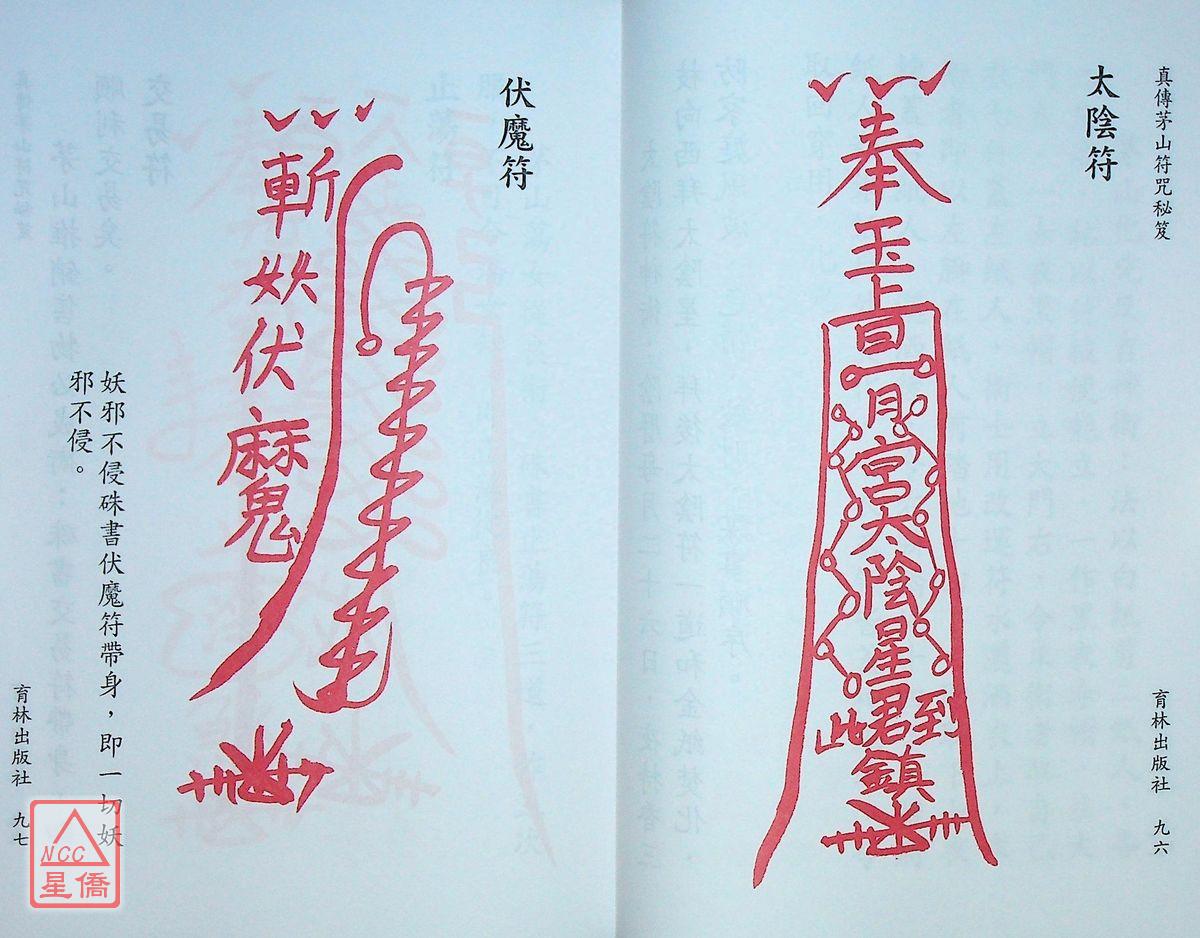 真傳茅山符咒秘笈
太陰符
奉
玉
上
日
月
宮
太
陰
星
君
到此
鎮
育林出版社 九六
伏魔符
斬
妖
伏
魔
妖邪不侵硃書伏魔符帶身，即一切妖
邪不侵。
育林出版社 九七
NCC
星僑